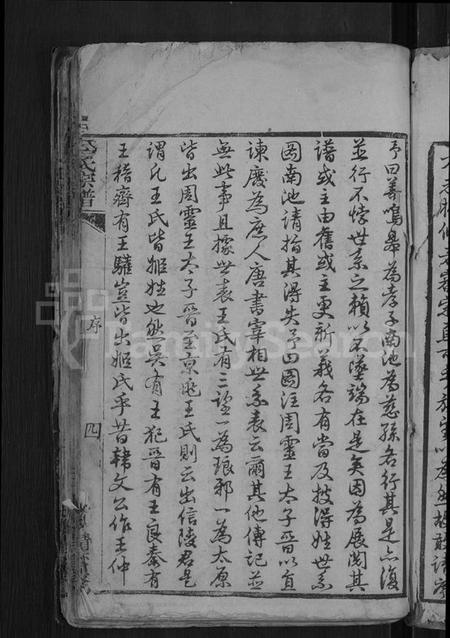 予曰善鳴臯為孝子南池為慈孫各行其是亦復
並行不悖世系之賴以不墜端在是矣因為展閱其
譜或主由舊或主更新義各有當及披得姓世系
圖南池請指其得失予曰圖注周靈王太子晉以直
諫廢為庶人唐書宰相世系表云爾其他傳記並
無此事且據世表王氏有三望一為琅邪一為太原
皆出周靈王太子晉至京兆王氏則云出信陵君是
謂凡王氏皆姬姓也然吳有王犯晉有王良秦有
王稽齊有王驩豈皆出姬氏乎昔韓文公作王仲
氏宗譜
序
四
FamilySearch